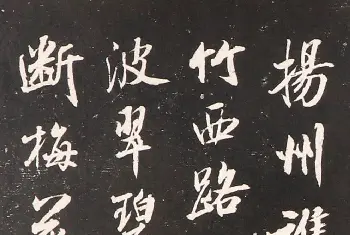 揚州
竹西路
波翠
断梅